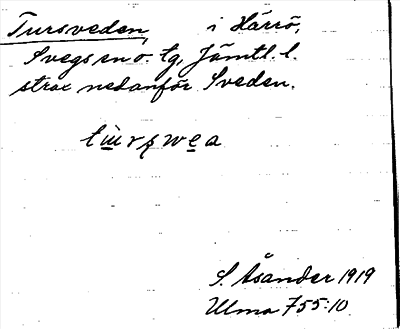 Tursveden, i Härrö,
Svegs sn o. tg, Jämtl. l.
strax nedanför Sveden.
S. Åsander 1919
Ulma 755:10